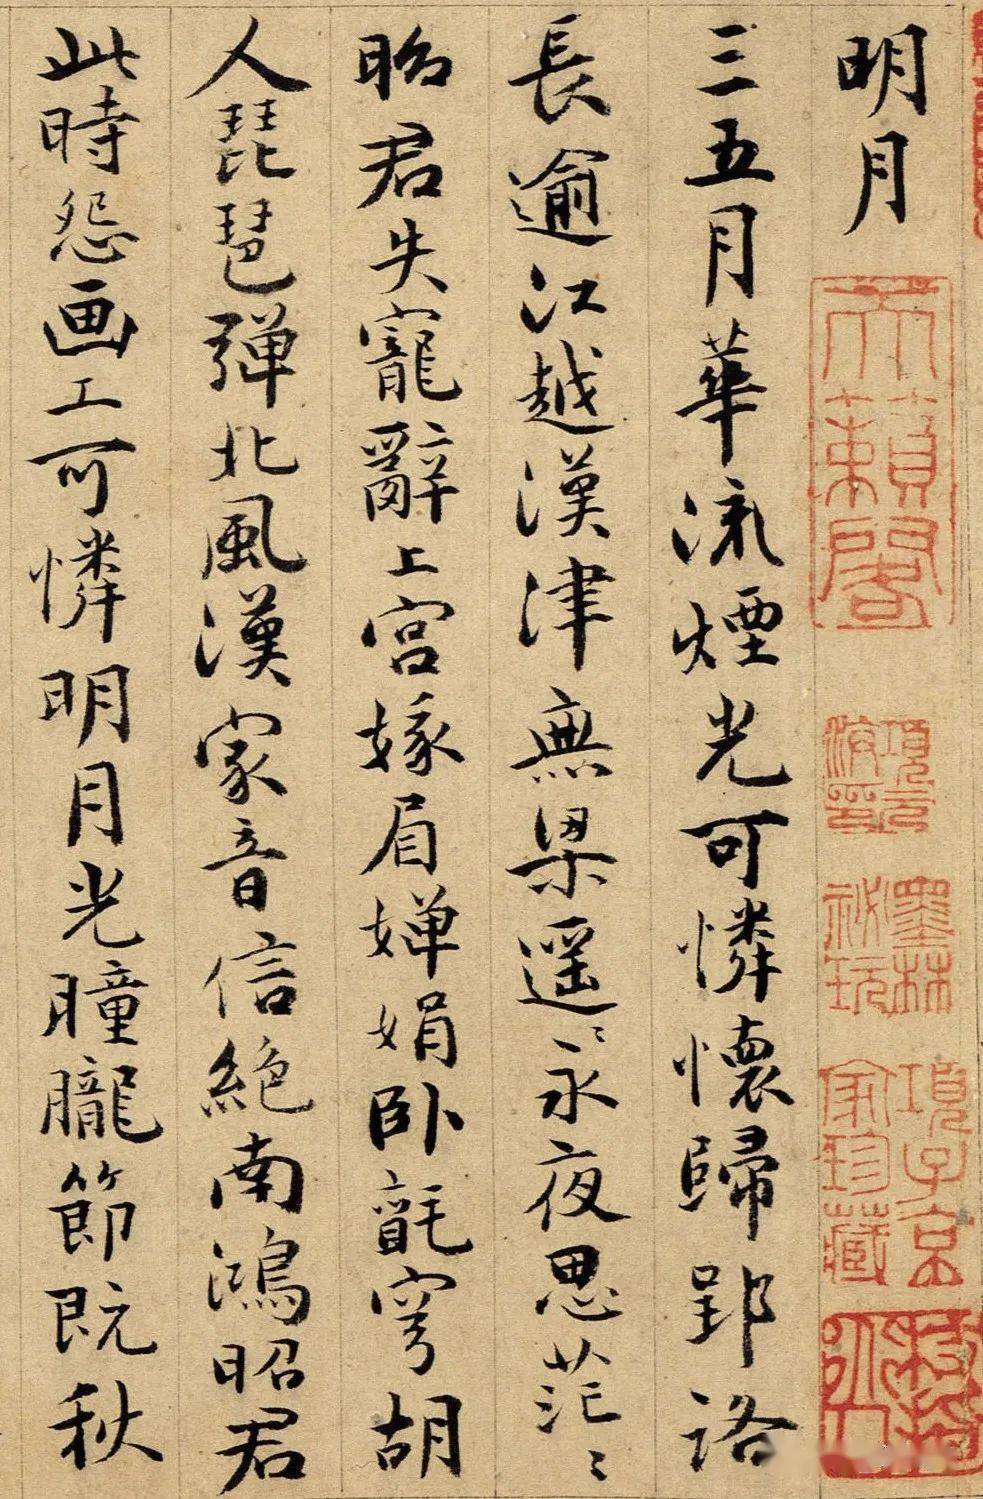 明月
三五月華流煙光可憐懷歸郢路
長逾江越漢津無梁遥〻永夜思茫〻
昭君失寵辭上宮娥眉嬋娟卧氈穹胡
人琵琶弾北風漢家音信絶南鴻昭君
此時怨画工可憐明月光朣朧節既秋
天籟閣
項元汴印
墨林祕玩
項子京家珍藏